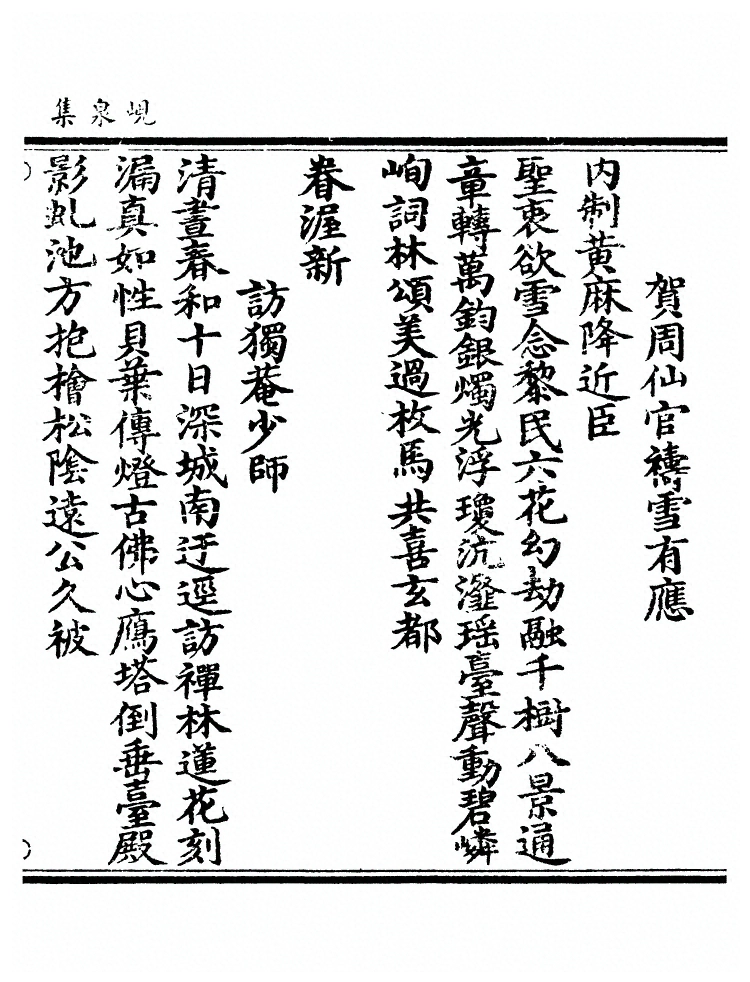 峴泉集
賀周仙官禱雪有應
内制黄麻降近臣
聖衷欲雪念黎民六花幻劫融千樹八景通
章轉萬鈞銀燭光浮瓊沆瀣瑶臺聲動碧嶙
峋詞林頌美過枚馬共喜玄都
眷渥新
訪獨菴少師
清晝春和十日深城南迂逕訪禪林蓮花刻
漏真如性貝葉傳燈古佛心鴈塔倒垂臺殿
影虬池方抱檜松陰遠公久被